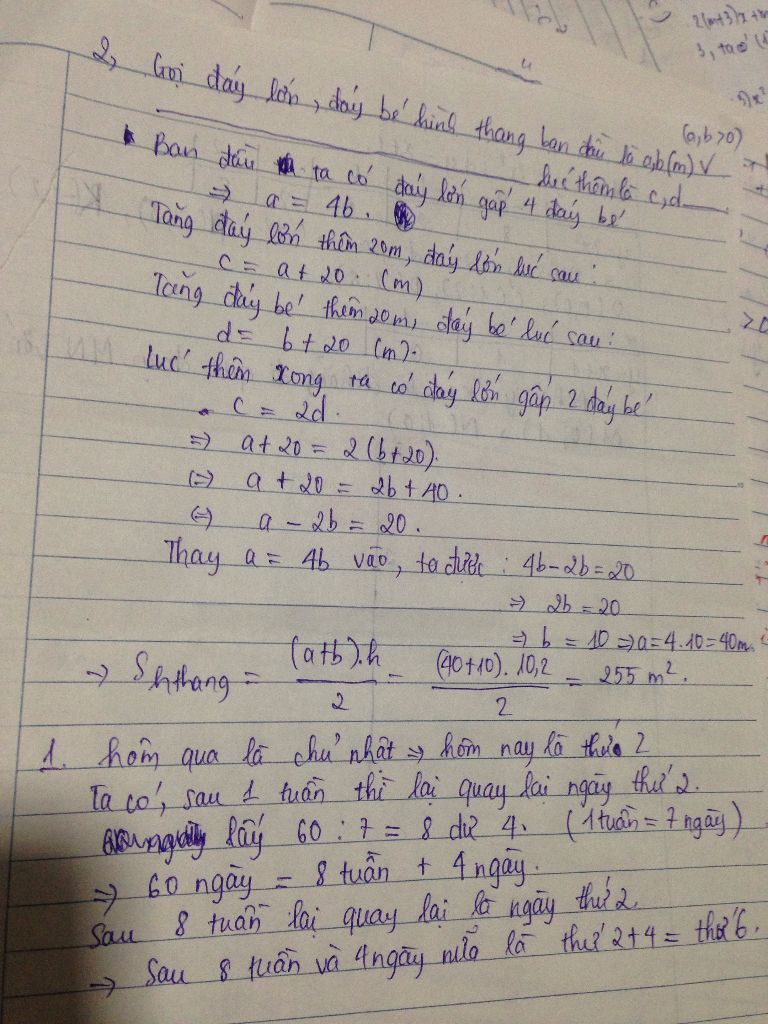 2(m+3)x+m
3, ta có (1
2, Gọi đáy lớn, đáy bé hình thang ban đầu là a,b(m) (a,b>0)
lúc thêm là c,d
Ban đầu ta có đáy lớn gấp 4 đáy bé
=> a = 4b.
Tăng đáy lớn thêm 20m, đáy lớn lúc sau:
c = a + 20. (m)
Tăng đáy bé thêm 20m, đáy bé lúc sau:
d = b + 20 (m).
Lúc thêm xong ta có đáy lớn gấp 2 đáy bé
c = 2d.
=> a + 20 = 2(b+20).
(=) a + 20 = 2b + 40.
(=) a - 2b = 20.
Thay a = 4b vào, ta được: 4b - 2b = 20
=> 2b = 20
=> b = 10 => a = 4.10 = 40m.
-> S hthang = (a+b).h / 2 = (40+10).10,2 / 2 = 255 m².
1. hôm qua là chủ nhật => hôm nay là thứ 2
Ta có, sau 1 tuần thì lại quay lại ngày thứ 2.
lấy 60 : 7 = 8 dư 4. (1 tuần = 7 ngày)
=> 60 ngày = 8 tuần + 4 ngày.
Sau 8 tuần lại quay lại là ngày thứ 2.
-> Sau 8 tuần và 4 ngày nữa là thứ 2+4 = thứ 6.